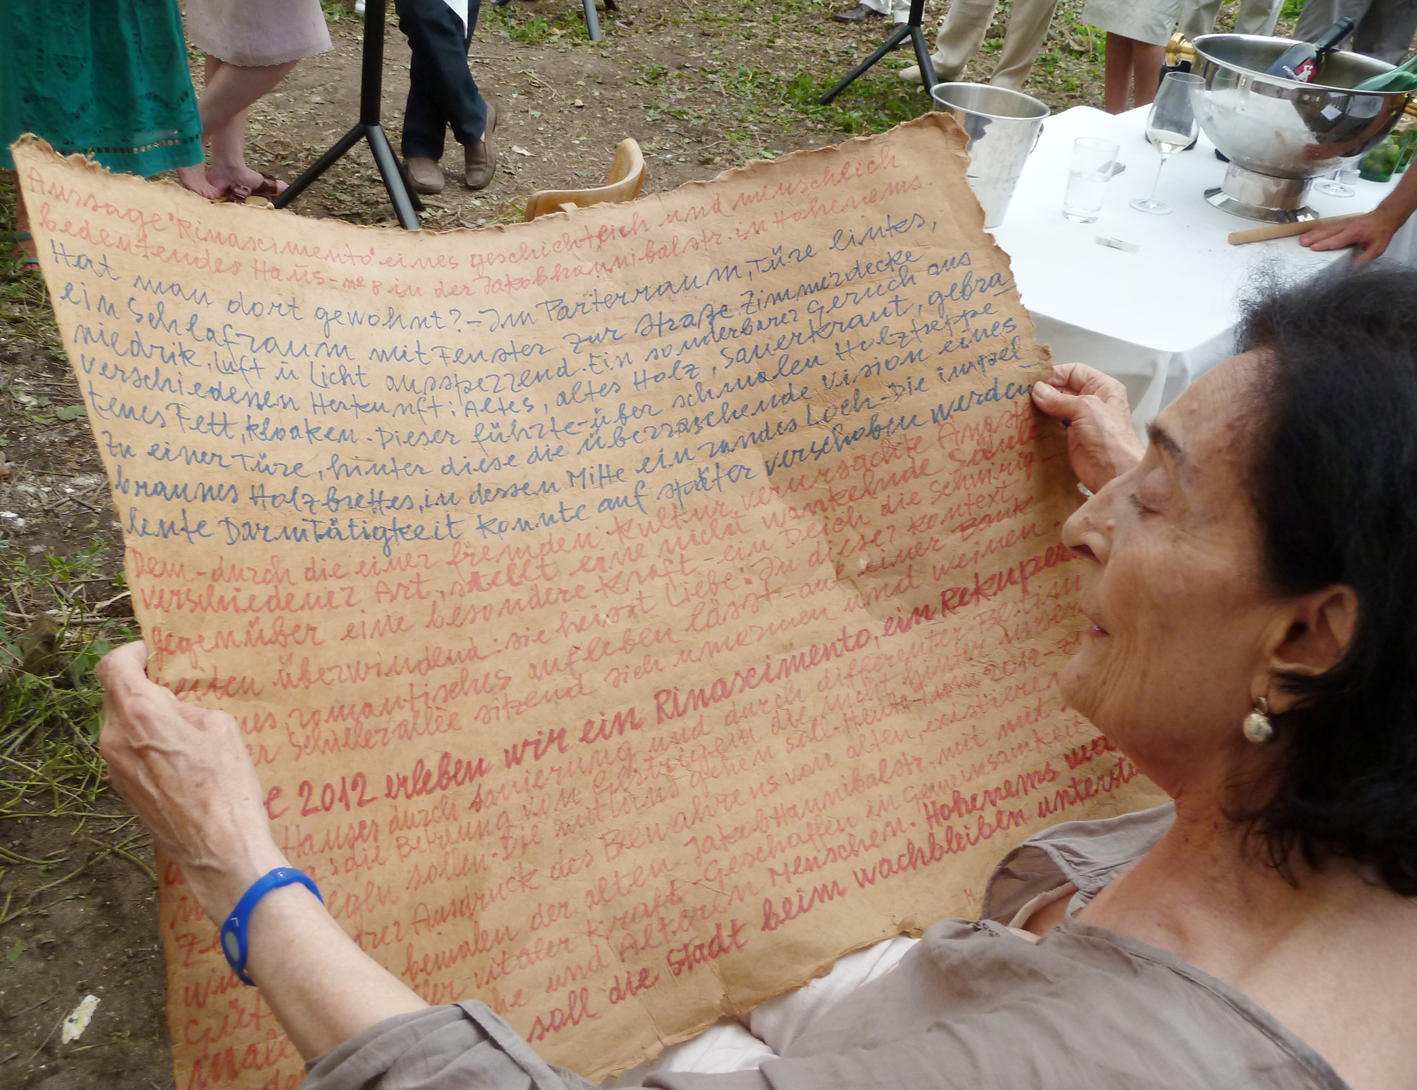 Aussage "Rinascimento" eines geschichtlich und menschlich
bedeutendes Haus-№ 8 in der Jakobhannibalstr. in Hohenems.
Hat man dort gewohnt?-Im Parterraum, Türe lintes,
ein Schlafraum mit Fenster zur Straße Zimmerdecke
niedrik, Luft u Licht aussperrend. Ein sonderbarer Geruch aus
verschiedenen Herkunft: Altes, altes Holz, Sauerkraut, gebra-
tenes Fett, kloaken. Dieser führte-über schmalen Holztreppe
zu einer Türe, hinter diese die überraschende Vision eines
braunes Holzbrettes, in dessen Mitte ein rundes Loch-Die impel-
lente Darmtätigkeit konnte auf später verschoben werden
Dem-durch die einer fremden Kultur verursachte Angst
verschiedener Art, stellt eine nicht wankelnde Säule
gegenüber eine besondere Kraft-ein Deich die Schwirig-
überwindend: sie heisst Liebe. In dieser Kontext
romantisches aufleben lässt-auf einer Bank
Schillerallee sitzend sich umarmen und weinen.
2012 erleben wir ein Rinascimento, ein Rekuper
Häuser durch Sanierung und durch differenter Bestim
die Befreiung vom Gestrigem die nicht hinter
sollen. Die nicht verloren gehen soll-Heute Juni 2012-
Ausdruck des Bewahrens von alten, existieren
bemalen der alten JakobHannibalstr. mit
vitaler Kraft. Geschaffen in Gemeinsamkeit
und Alteren Menschen. Hohenems
soll die Stadt beim wachbleiben unterstü